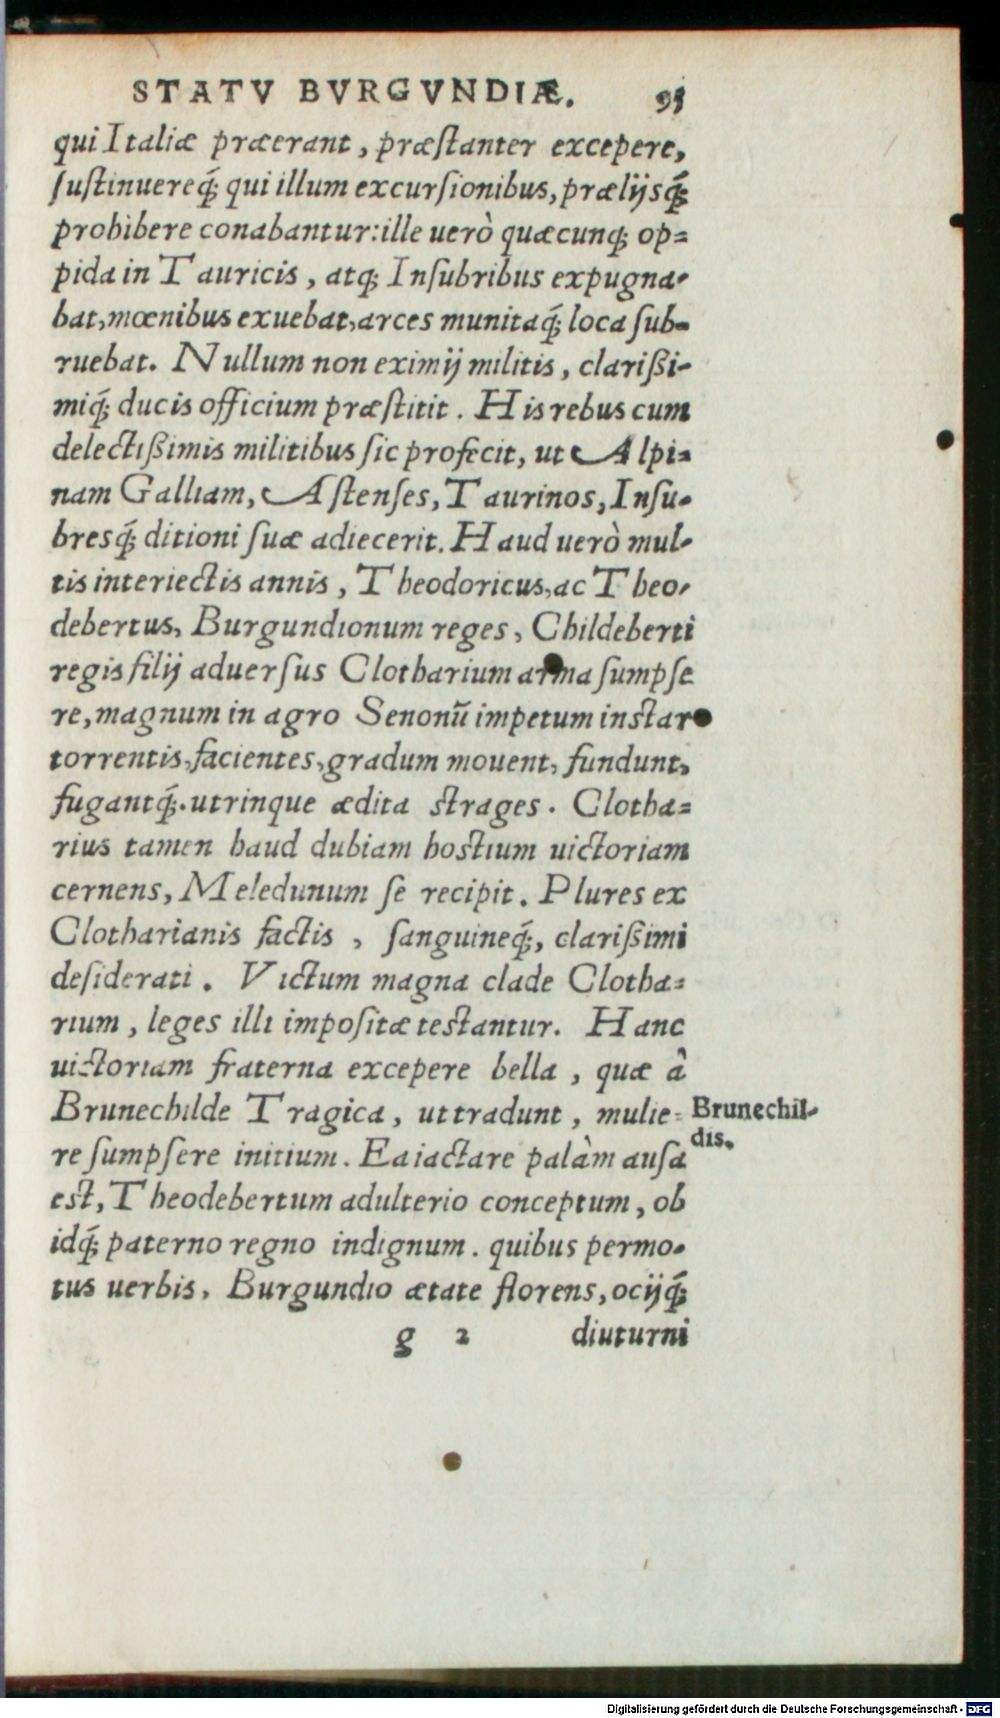 STATV BVRGVNDIÆ. 95
qui Italiæ præerant, præſtanter excepere,
ſuſtinuereq́; qui illum excurſionibus, prælijsq́;
prohibere conabantur: ille uerò quæcunq; op=
pida in Tauricis, atq; Inſubribus expugna-
bat, mœnibus exuebat, arces munitaq́; loca ſub-
ruebat. Nullum non eximij militis, clarißi-
miq́; ducis officium præſtitit. His rebus cum
delectißimis militibus ſic profecit, ut Alpi=
nam Galliam, Aſtenſes, Taurinos, Inſu-
bresq́; ditioni ſuæ adiecerit. Haud uerò mul-
tis interiectis annis, Theodoricus, ac Theo-
debertus, Burgundionum reges, Childeberti
regis filij aduerſus Clotharium arma ſumpſe
re, magnum in agro Senonũ impetum inſtar
torrentis, facientes, gradum mouent, fundunt,
fugantq́;. utrinque ædita ſtrages. Clotha=
rius tamen haud dubiam hoſtium uictoriam
cernens, Meledunum ſe recipit. Plures ex
Clotharianis factis, ſanguineq́;, clarißimi
deſiderati. Victum magna clade Clotha=
rium, leges illi impoſitæ teſtantur. Hanc
uictoriam fraterna excepere bella, quæ à
Brunechilde Tragica, ut tradunt, mulie=
Brunechil-
dis.
re ſumpſere initium. Ea iactare palàm auſa
eſt, Theodebertum adulterio conceptum, ob
idq́; paterno regno indignum. quibus permo-
tus uerbis, Burgundio ætate florens, ocijq́;
g 2 diuturni
Digitalisierung gefördert durch die Deutsche Forschungsgemeinschaft - DFG